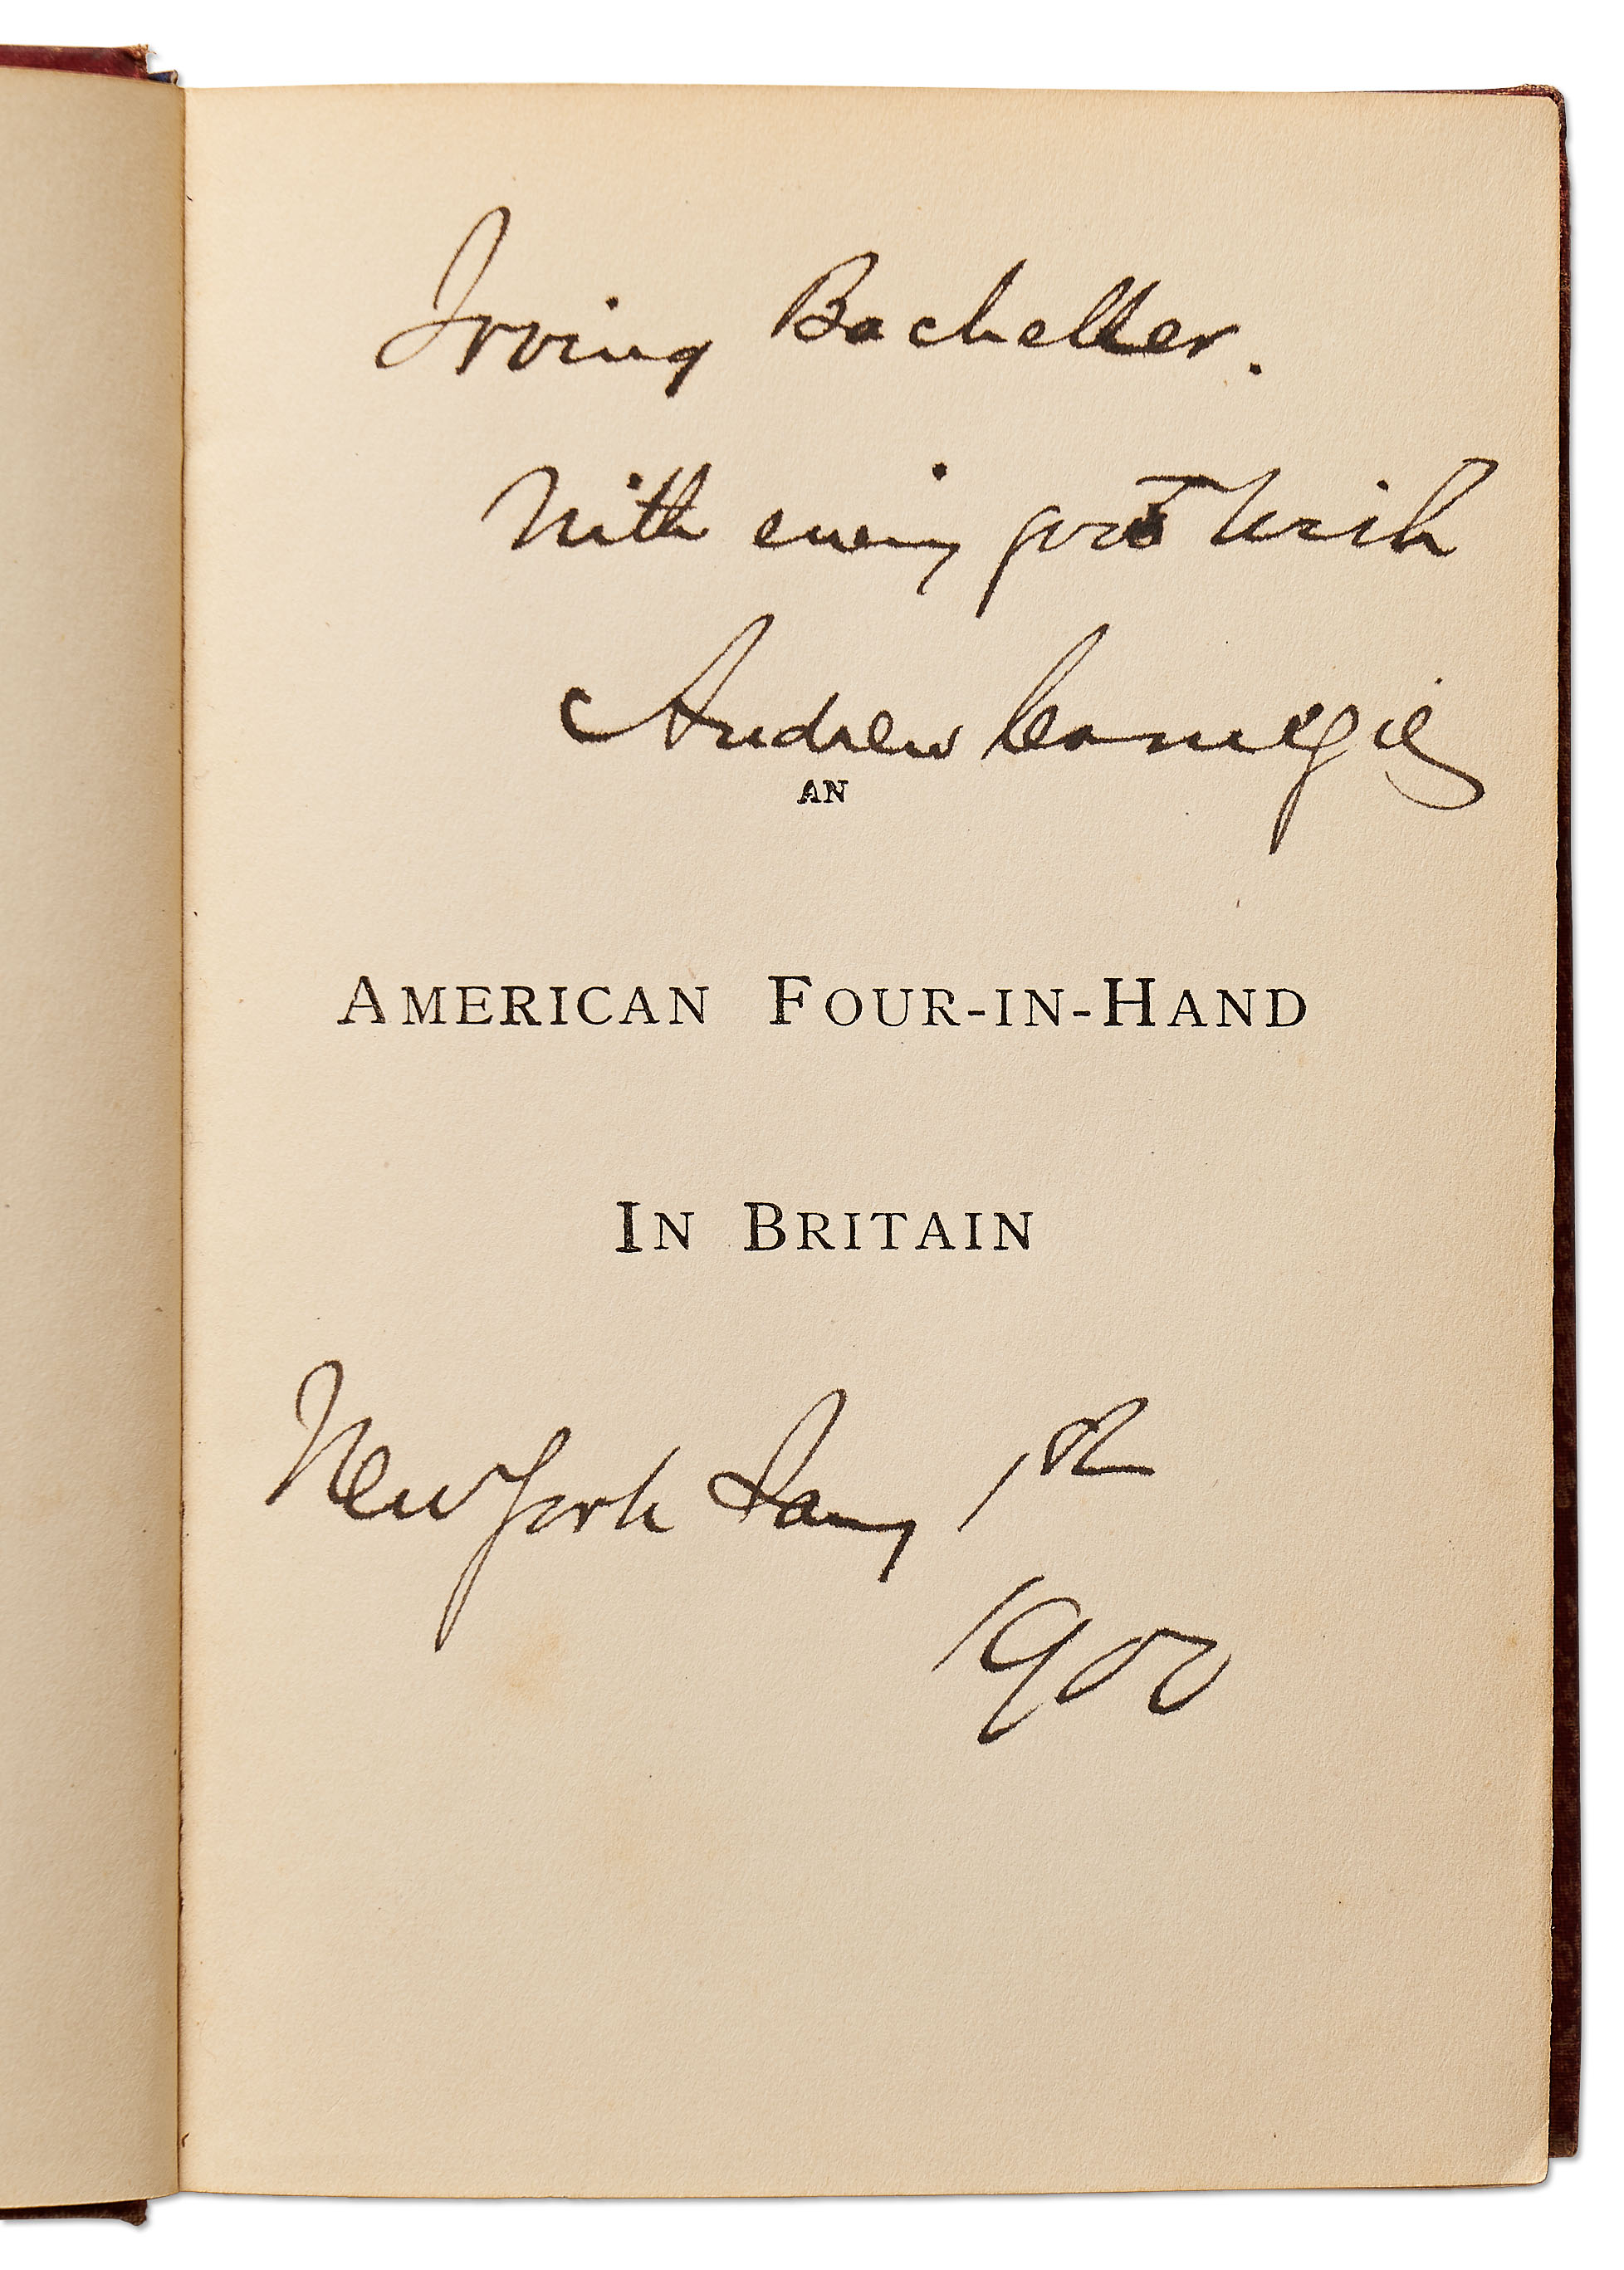 Irving Bacheller.
With every good wish
Andrew Carnegie
AN
AMERICAN FOUR-IN-HAND
IN BRITAIN
New York Jany 1st
1900